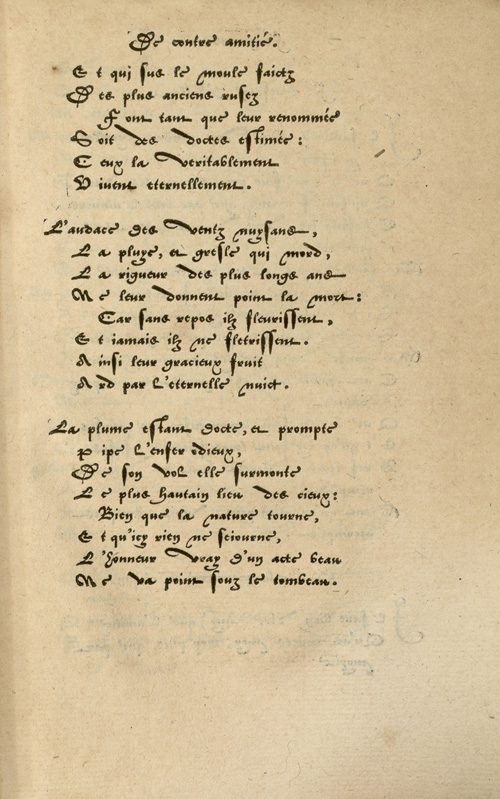 De contre amitié.
Et qui sus le moule faictz
Des plus anciens rusez
Font tant que leur renommée
Soit des doctes estimée :
Ceux la veritablement
Vivent eternellement.
L'audace des ventz nuysans,
La pluye, et gresle qui mord,
La rigueur des plus longs ans
Ne leur donnent point la mort :
Car sans repos ilz fleurissent,
Et iamais ilz ne fletrissent.
Ainsi leur gracieux fruit
Ard par l'eternelle nuict.
La plume estant docte, et prompte
pipe l'enfer odieux,
De son vol elle surmonte
Le plus hautain lieu des cieux :
Bien que la nature tourne,
Et qu'icy rien ne seiourne,
L'honneur vray d'un acte beau
Ne va point souz le tombeau.